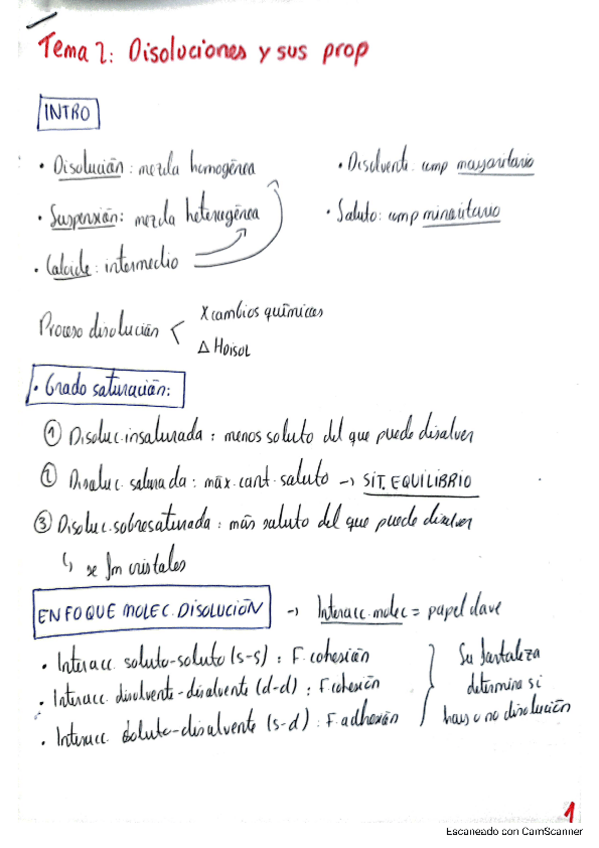 Tema 2: Disoluciones y sus prop
INTRO
• Disolución: mezcla homogénea
• Disolvente: comp mayoritario
• Suspensión: mezcla heterogénea
• Soluto: comp minoritario
• Coloide: intermedio
Proceso disolución < X cambios químicos
Δ Hdisol
• Grado saturación:
① Disoluc. insaturada: menos soluto del que puede disolver
② Disoluc. saturada: máx. cant. soluto → SIT. EQUILIBRIO
③ Disoluc. sobresaturada: más soluto del que puede disolver
↳ se fm cristales
ENFOQUE MOLEC. DISOLUCIÓN → Interacc. molec = papel clave
• Interacc. soluto-soluto (s-s): F. cohesión
• Interacc. disolvente-disolvente (d-d): F cohesión
• Interacc. soluto-disolvente (s-d): F. adhesión
Su fortaleza
determina si
hay o no disolución
1
Escaneado con CamScanner